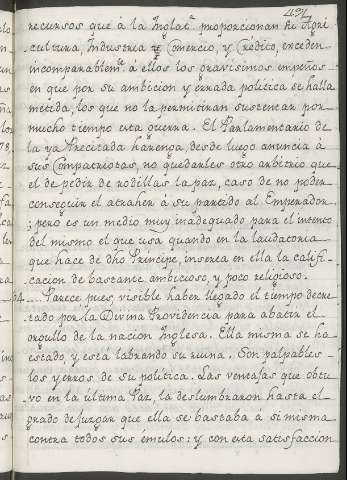 434
recursos que á la Inglat.ª proporcionan su Agri
cultura, Industria Comercio, y Crédito, exceden
incomparablem.te á ellos los gravisimos empeños
en que por su ambicion y errada politica se halla
metida, los que no la permitiran sustentar por
mucho tiempo esta guerra. El Parlamentario de
la ya Precitada harenga, desde luego anuncia á
sus Compatriotas, no quedarles otro arbitrio que
el de pedir de rodillas la paz, caso de no poder
conseguir el atraher á su partido al Emperador
; pero es un medio muy inadequado para el intento
del mismo el que usa quando en la laudatoria
que hace de dho Principe, inserta en ella la calif
cacion de bastante ambicioso, y poco religioso.
94.... Parece pues, visible haber llegado el tiempo decre
tado por la Divina Providencia para abatir el
orgullo de la nacion Inglesa. Ella misma se ha
estado, y está labrando su ruina. Son palpables
los yerros de su politica. Las ventajas que obtu
vo en la ultima Paz, la deslumbraron hasta el
grado de juzgar que ella se bastaba á si misma
contra todos sus émulos: y con esta satisfaccion